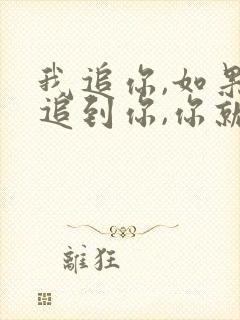 我追你,如果
追到你,你就
離狂